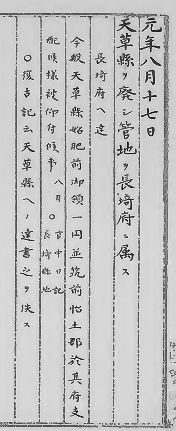 元年八月十七日
天草縣ヲ廢シ管地ヲ長埼府ニ属ス
長埼府ヘ達
今般天草縣始肥前御領一円並筑前怡土郡於其府支
配候樣被仰付候事 八月〇官中日記 長埼縣地
〇復古記云天草縣ヘノ達書之ヲ佚ス